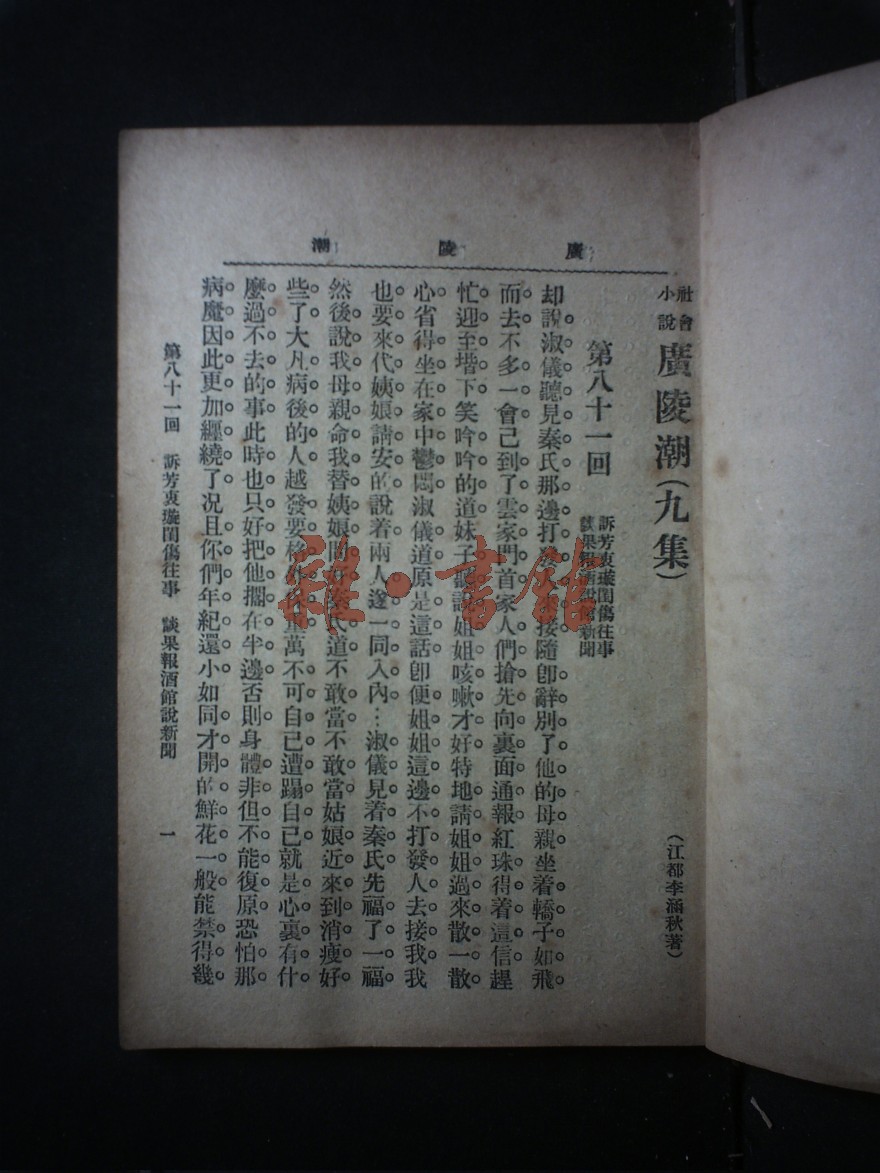 廣陵潮
社會小說 廣陵潮(九集) (江都李涵秋著)
第八十一回 訴芳衷璇閨傷往事 談果報酒館說新聞
却說淑儀聽見秦氏那邊打發人來接隨卽辭別了他的母親坐着轎子如飛
而去不多一會己到了雲家門首家人們搶先向裏面通報紅珠得着這信趕
忙迎至堦下笑吟吟的道妹子聽說姐姐咳嗽才好特地請姐姐過來散一散
心省得坐在家中鬱悶淑儀道原是這話卽便姐姐這邊不打發人去接我我
也要來代姨娘請安的說着兩人遂一同入內…淑儀見着秦氏先福了一福
然後說我母親命我替姨娘問好秦氏道不敢當不敢當姑娘近來到消瘦好
些了大凡病後的人越發要格外保重萬不可自己遭蹋自己就是心裏有什
麼過不去的事此時也只好把他擱在半邊否則身體非但不能復原恐怕那
病魔因此更加纏繞了况且你們年紀還小如同才開的鮮花一般能禁得幾
第八十一回 訴芳衷璇閨傷往事 談果報酒館說新聞 一
雜·書館